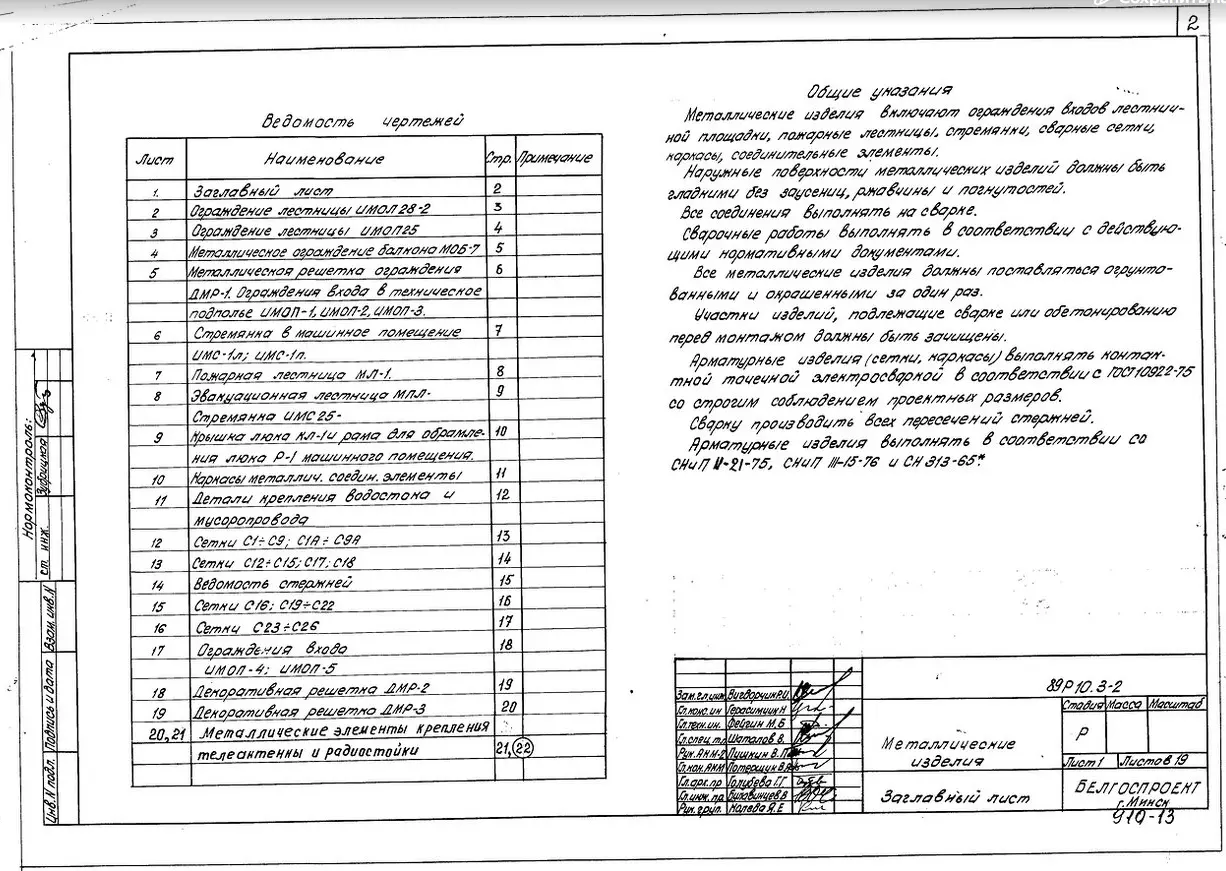 Сохранить на
2
Ведомость чертежей
Лист Наименование Стр. Примечание
1. Заглавный лист 2
2 Ограждение лестницы ИМОЛ 28-2 3
3 Ограждение лестницы ИМОЛ25 4
4 Металлическое ограждение балкона МОБ-7 5
5 Металлическая решетка ограждения 6
ДМР-1. Ограждения входа в техническое
подполье ИМОП-1, ИМОП-2, ИМОП-3.
6 Стремянка в машинное помещение 7
ИМС-1л; ИМС-1п.
7 Пожарная лестница МЛ-1. 8
8 Эвакуационная лестница МПЛ- 9
Стремянка ИМС25-
9 Крышка люка КЛ-1 и рама для обрамле- 10
ния люка Р-1 машинного помещения.
10 Каркасы металлич. соедин. элементы 11
11 Детали крепления водостока и 12
мусоропровода
12 Сетки С1÷С9; С1А÷С9А 13
13 Сетки С12÷С15; С17; С18 14
14 Ведомость стержней 15
15 Сетки С16; С19÷С22 16
16 Сетки С23÷С26 17
17 Ограждения входа 18
ИМОП-4; ИМОП-5
18 Декоративная решетка ДМР-2 19
19 Декоративная решетка ДМР-3 20
20,21 Металлические элементы крепления
телеантенны и радиостойки 21,22
Общие указания
Металлические изделия включают ограждения входов лестнич-
ной площадки, пожарные лестницы, стремянки, сварные сетки,
каркасы, соединительные элементы.
Наружные поверхности металлических изделий должны быть
гладкими без заусениц, ржавчины и погнутостей.
Все соединения выполнять на сварке.
Сварочные работы выполнять в соответствии с действую-
щими нормативными документами.
Все металлические изделия должны поставляться огрунто-
ванными и окрашенными за один раз.
Участки изделий, подлежащие сварке или обетонированию
перед монтажом должны быть зачищены.
Арматурные изделия (сетки, каркасы) выполнять контак-
тной точечной электросваркой в соответствии с ГОСТ10922-75
со строгим соблюдением проектных размеров.
Сварку производить всех пересечений стержней.
Арматурные изделия выполнять в соответствии со
СНиП II-21-75, СНиП III-15-76 и СН 313-65*
Нормоконтроль:
ст. инж. Зубрицкая
Инв.N подл. Подпись и дата Взам.инв.N
Зам.гл.инж. Вигдорчик Р.И.
Гл.конс.ин Герасимчик Н
Гл.техн.ин. Фейгин М.Б
Гл.спец.тл Шаталов В.
Рук.АКМ-2 Пушкин В.П
Гл.кон.АКМ Потерщук В.А
Гл.арх.пр Голубева Г.Г
Гл.инж.пр
Рук.груп. Коляда А.Е
89Р10.3-2
Металлические
изделия
Стадия Масса Масштаб
Р
Лист 1 Листов 19
Заглавный лист
БЕЛГОСПРОЕКТ
г.Минск
910-13